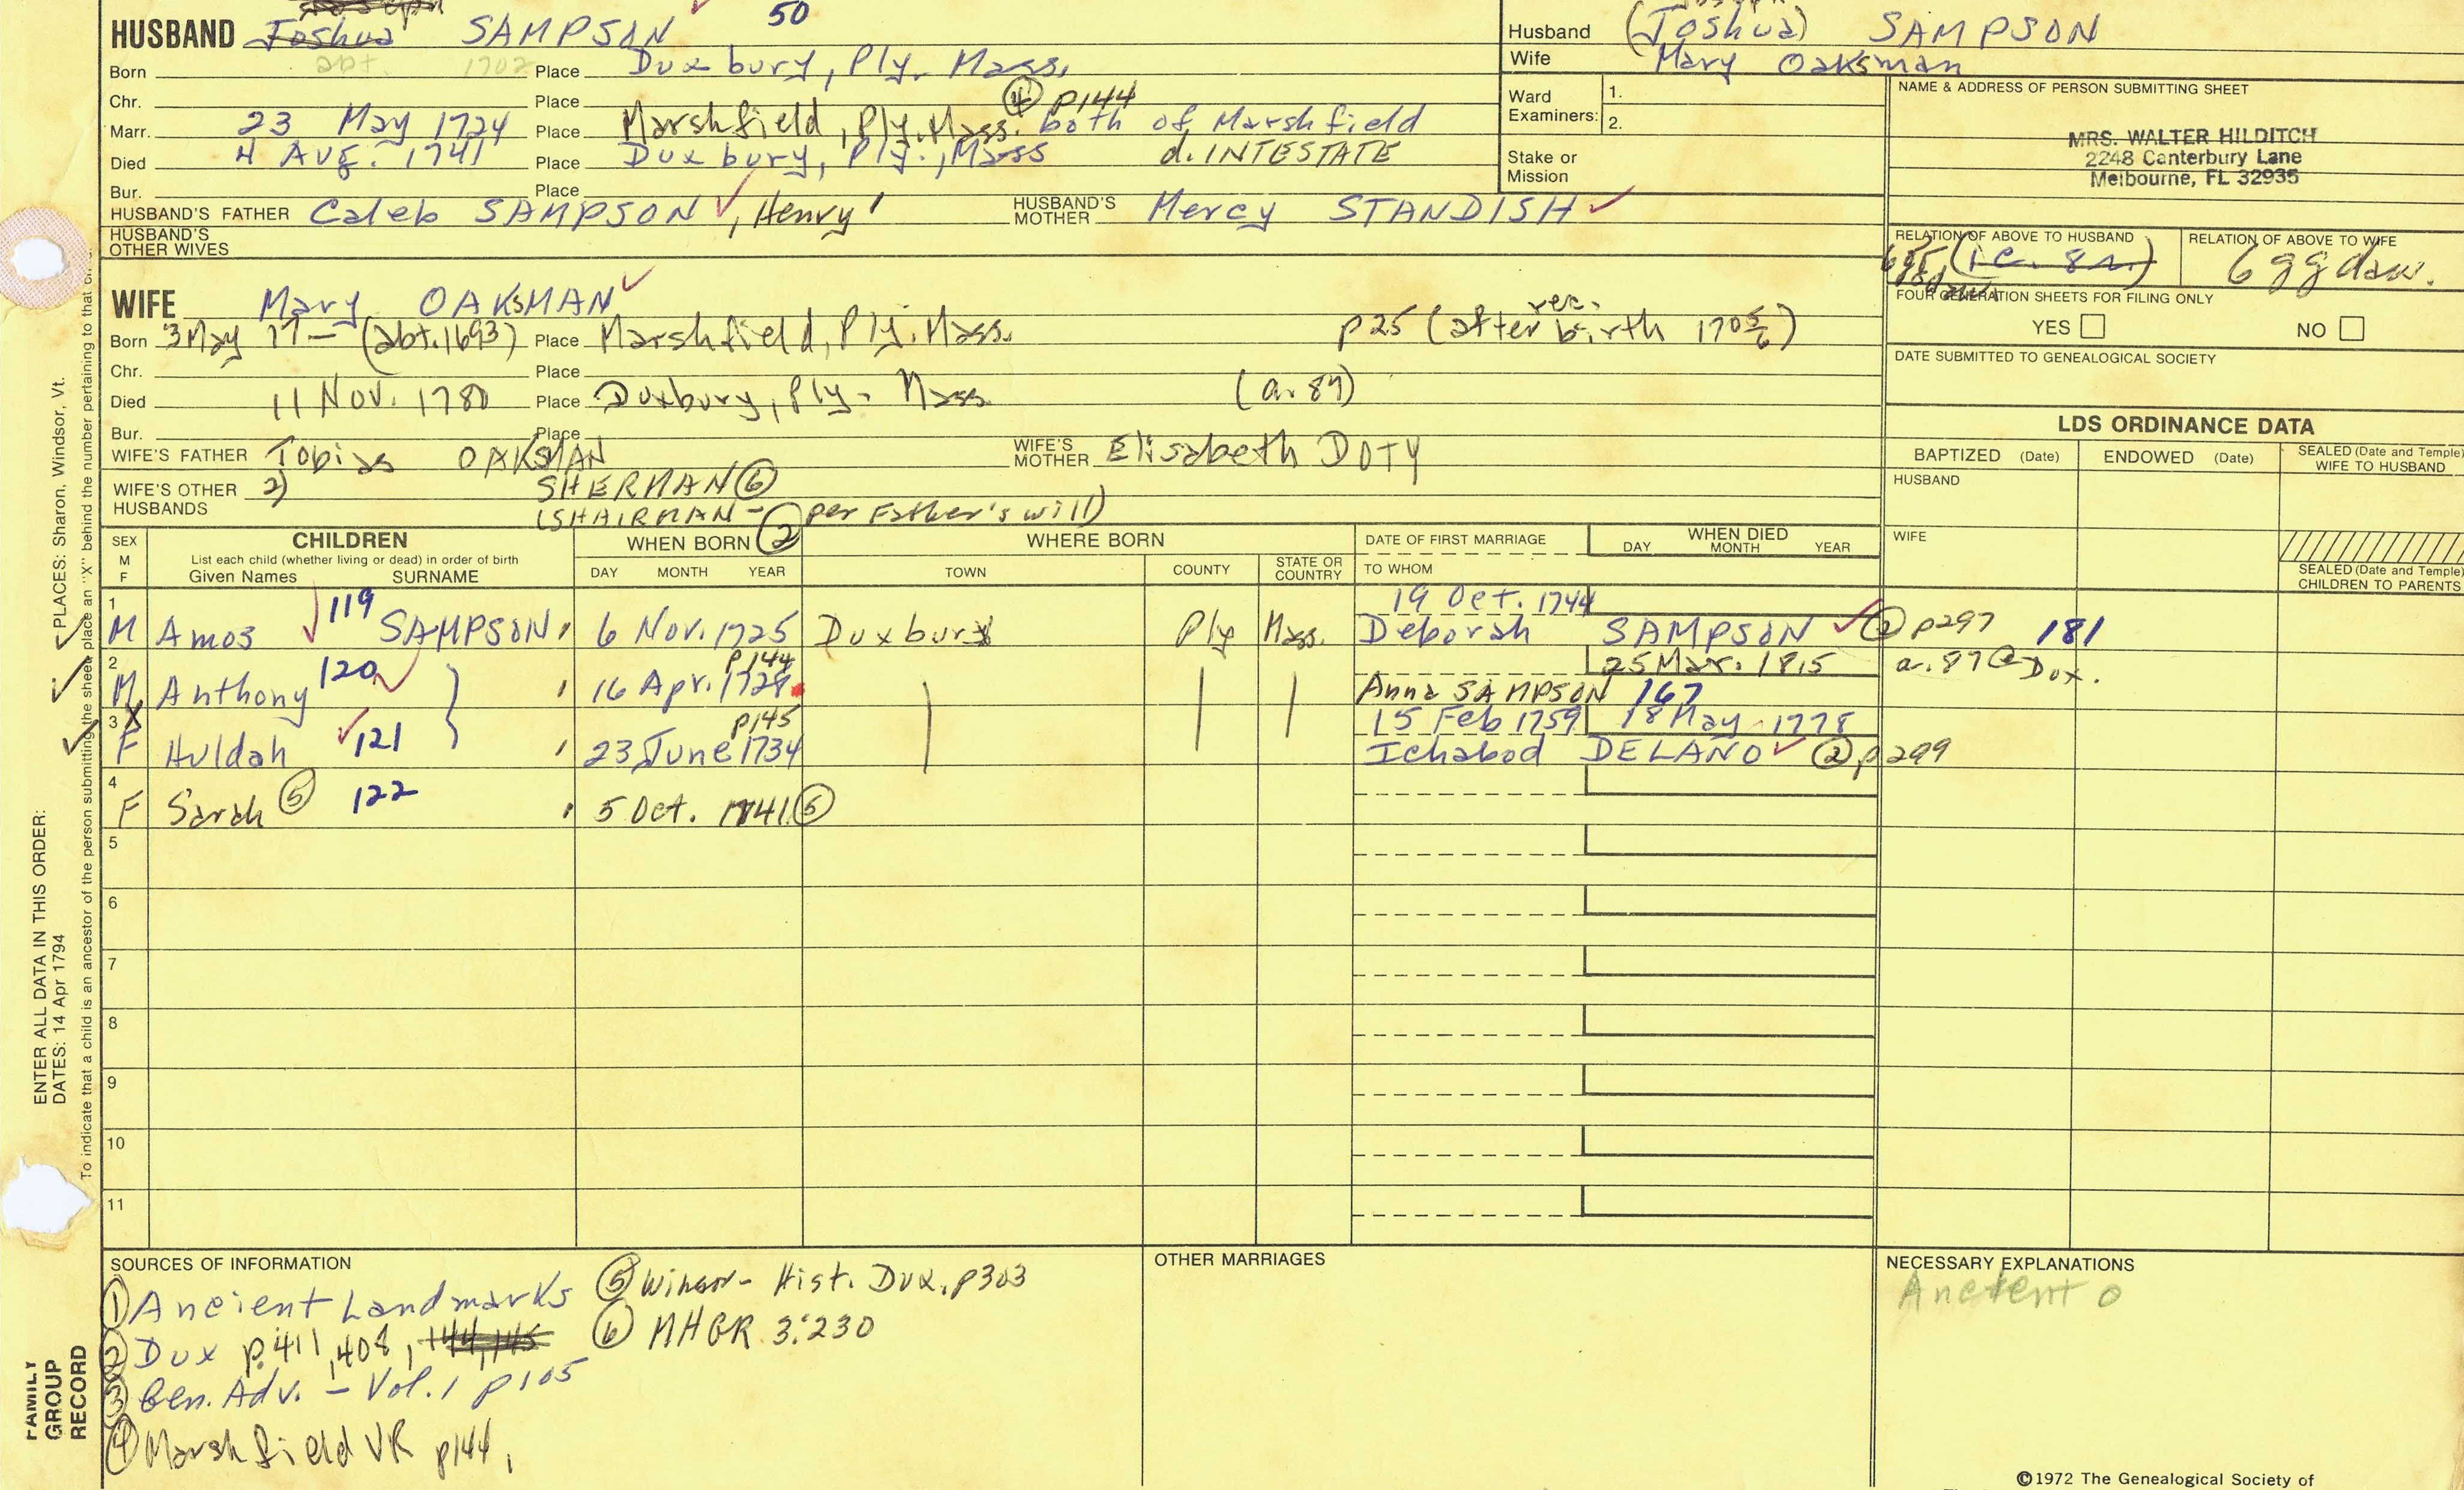 HUSBAND Joshua SAMPSON 50
Born abt. 1702 Place Duxbury, Ply. Mass.
Chr. Place
Marr. 23 May 1724 Place Marshfield, Ply. Mass. ④ p144 both of Marshfield
Died 4 Aug. 1741 Place Duxbury, Ply., Mass d. INTESTATE
Bur. Place
HUSBAND'S FATHER Caleb SAMPSON ✓, Henry' HUSBAND'S MOTHER Mercy STANDISH ✓
HUSBAND'S OTHER WIVES
Husband (Joshua) SAMPSON
Wife Mary Oaksman
Ward Examiners: 1.
2.
Stake or Mission
NAME & ADDRESS OF PERSON SUBMITTING SHEET
MRS. WALTER HILDITCH
2248 Canterbury Lane
Melbourne, FL 32935
RELATION OF ABOVE TO HUSBAND
RELATION OF ABOVE TO WIFE
6 gg daw.
FOUR GENERATION SHEETS FOR FILING ONLY
YES NO
DATE SUBMITTED TO GENEALOGICAL SOCIETY
WIFE Mary OAKSMAN ✓
Born 3 May 17— (abt. 1693) Place Marshfield, Ply. Mass. p25 (after rec. birth 1705/6)
Chr. Place
Died 11 Nov. 1780 Place Duxbury, Ply. Mass (a. 87)
Bur. Place
WIFE'S FATHER Tobias OAKSMAN WIFE'S MOTHER Elisabeth DOTY
WIFE'S OTHER HUSBANDS 2) SHERMAN ⑥
(SHAIRMAN — ② per Father's will)
LDS ORDINANCE DATA
BAPTIZED (Date) ENDOWED (Date) SEALED (Date and Temple) WIFE TO HUSBAND
HUSBAND
WIFE
SEALED (Date and Temple) CHILDREN TO PARENTS
SEX M F
CHILDREN
List each child (whether living or dead) in order of birth
Given Names SURNAME
WHEN BORN
DAY MONTH YEAR
WHERE BORN
TOWN COUNTY STATE OR COUNTRY
DATE OF FIRST MARRIAGE
TO WHOM
WHEN DIED
DAY MONTH YEAR
1 M Amos ✓ 119 SAMPSON 6 Nov. 1725 Duxbury Ply Mass. 19 Oct. 1744
Deborah SAMPSON ✓ ② p297 181
2 M Anthony 120 ✓ p144 16 Apr. 1728 25 Mar. 1815 a. 87 @ Dux.
Anna SAMPSON 167
3 X F Huldah ✓ 121 p145 23 June 1734 15 Feb 1759 18 May 1778
Ichabod DELANO ✓ ② p299
4 F Sarah ⑤ 122 5 Oct. 1741 ⑤
5
6
7
8
9
10
11
SOURCES OF INFORMATION
① Ancient Landmarks
② Dux p. 411, 408, 144, 145
③ Gen. Adv. – Vol. 1 p105
④ Marshfield VR p144,
⑤ Winsor – Hist. Dux. p303
⑥ MHGR 3:230
OTHER MARRIAGES
NECESSARY EXPLANATIONS
Ancient
©1972 The Genealogical Society of
ENTER ALL DATA IN THIS ORDER:
DATES: 14 Apr 1794
PLACES: Sharon, Windsor, Vt.
To indicate that a child is an ancestor of the person submitting the sheet, place an "X" behind the number pertaining to that
FAMILY GROUP RECORD